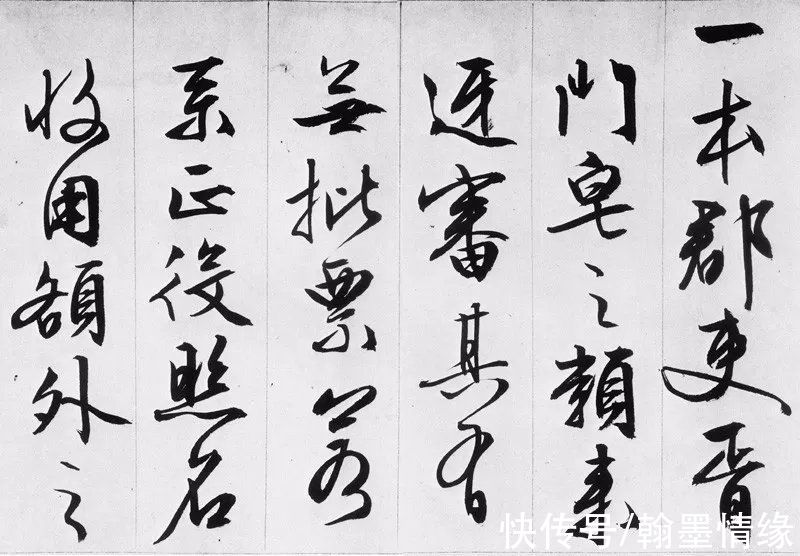 一本郡吏胥
門皂之類來
迓審其有
無批票若
系正役照名
收用額外之
快传号/翰墨情缘